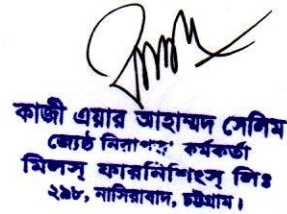 কাজী এয়ার আহাম্মদ সেলিম
জ্যেষ্ঠ নিরাপত্তা কর্মকর্তা
মিলস্ ফারনিশিংস্ লিঃ
২৯৮, নাসিরাবাদ, চট্টগ্রাম।